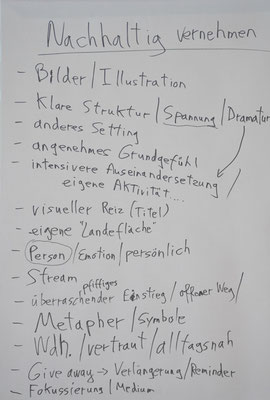 Nachhaltig vernehmen
- Bilder / Illustration
- Klare Struktur / Spannung / Dramatur
- anderes Setting
- angenehmes Grundgefühl
- intensivere Auseinandersetzung /
eigene Aktivität...
- visueller Reiz (Titel)
- eigene "Landefläche"
- Person / Emotion / persönlich
- Stream
pfiffiges
- überraschender Einstieg / offener Weg /
- Metapher / Symbole
- Wdh. / vertraut / alltagsnah
- Give away → Verlängerung / Reminder
- Fokussierung / Medium